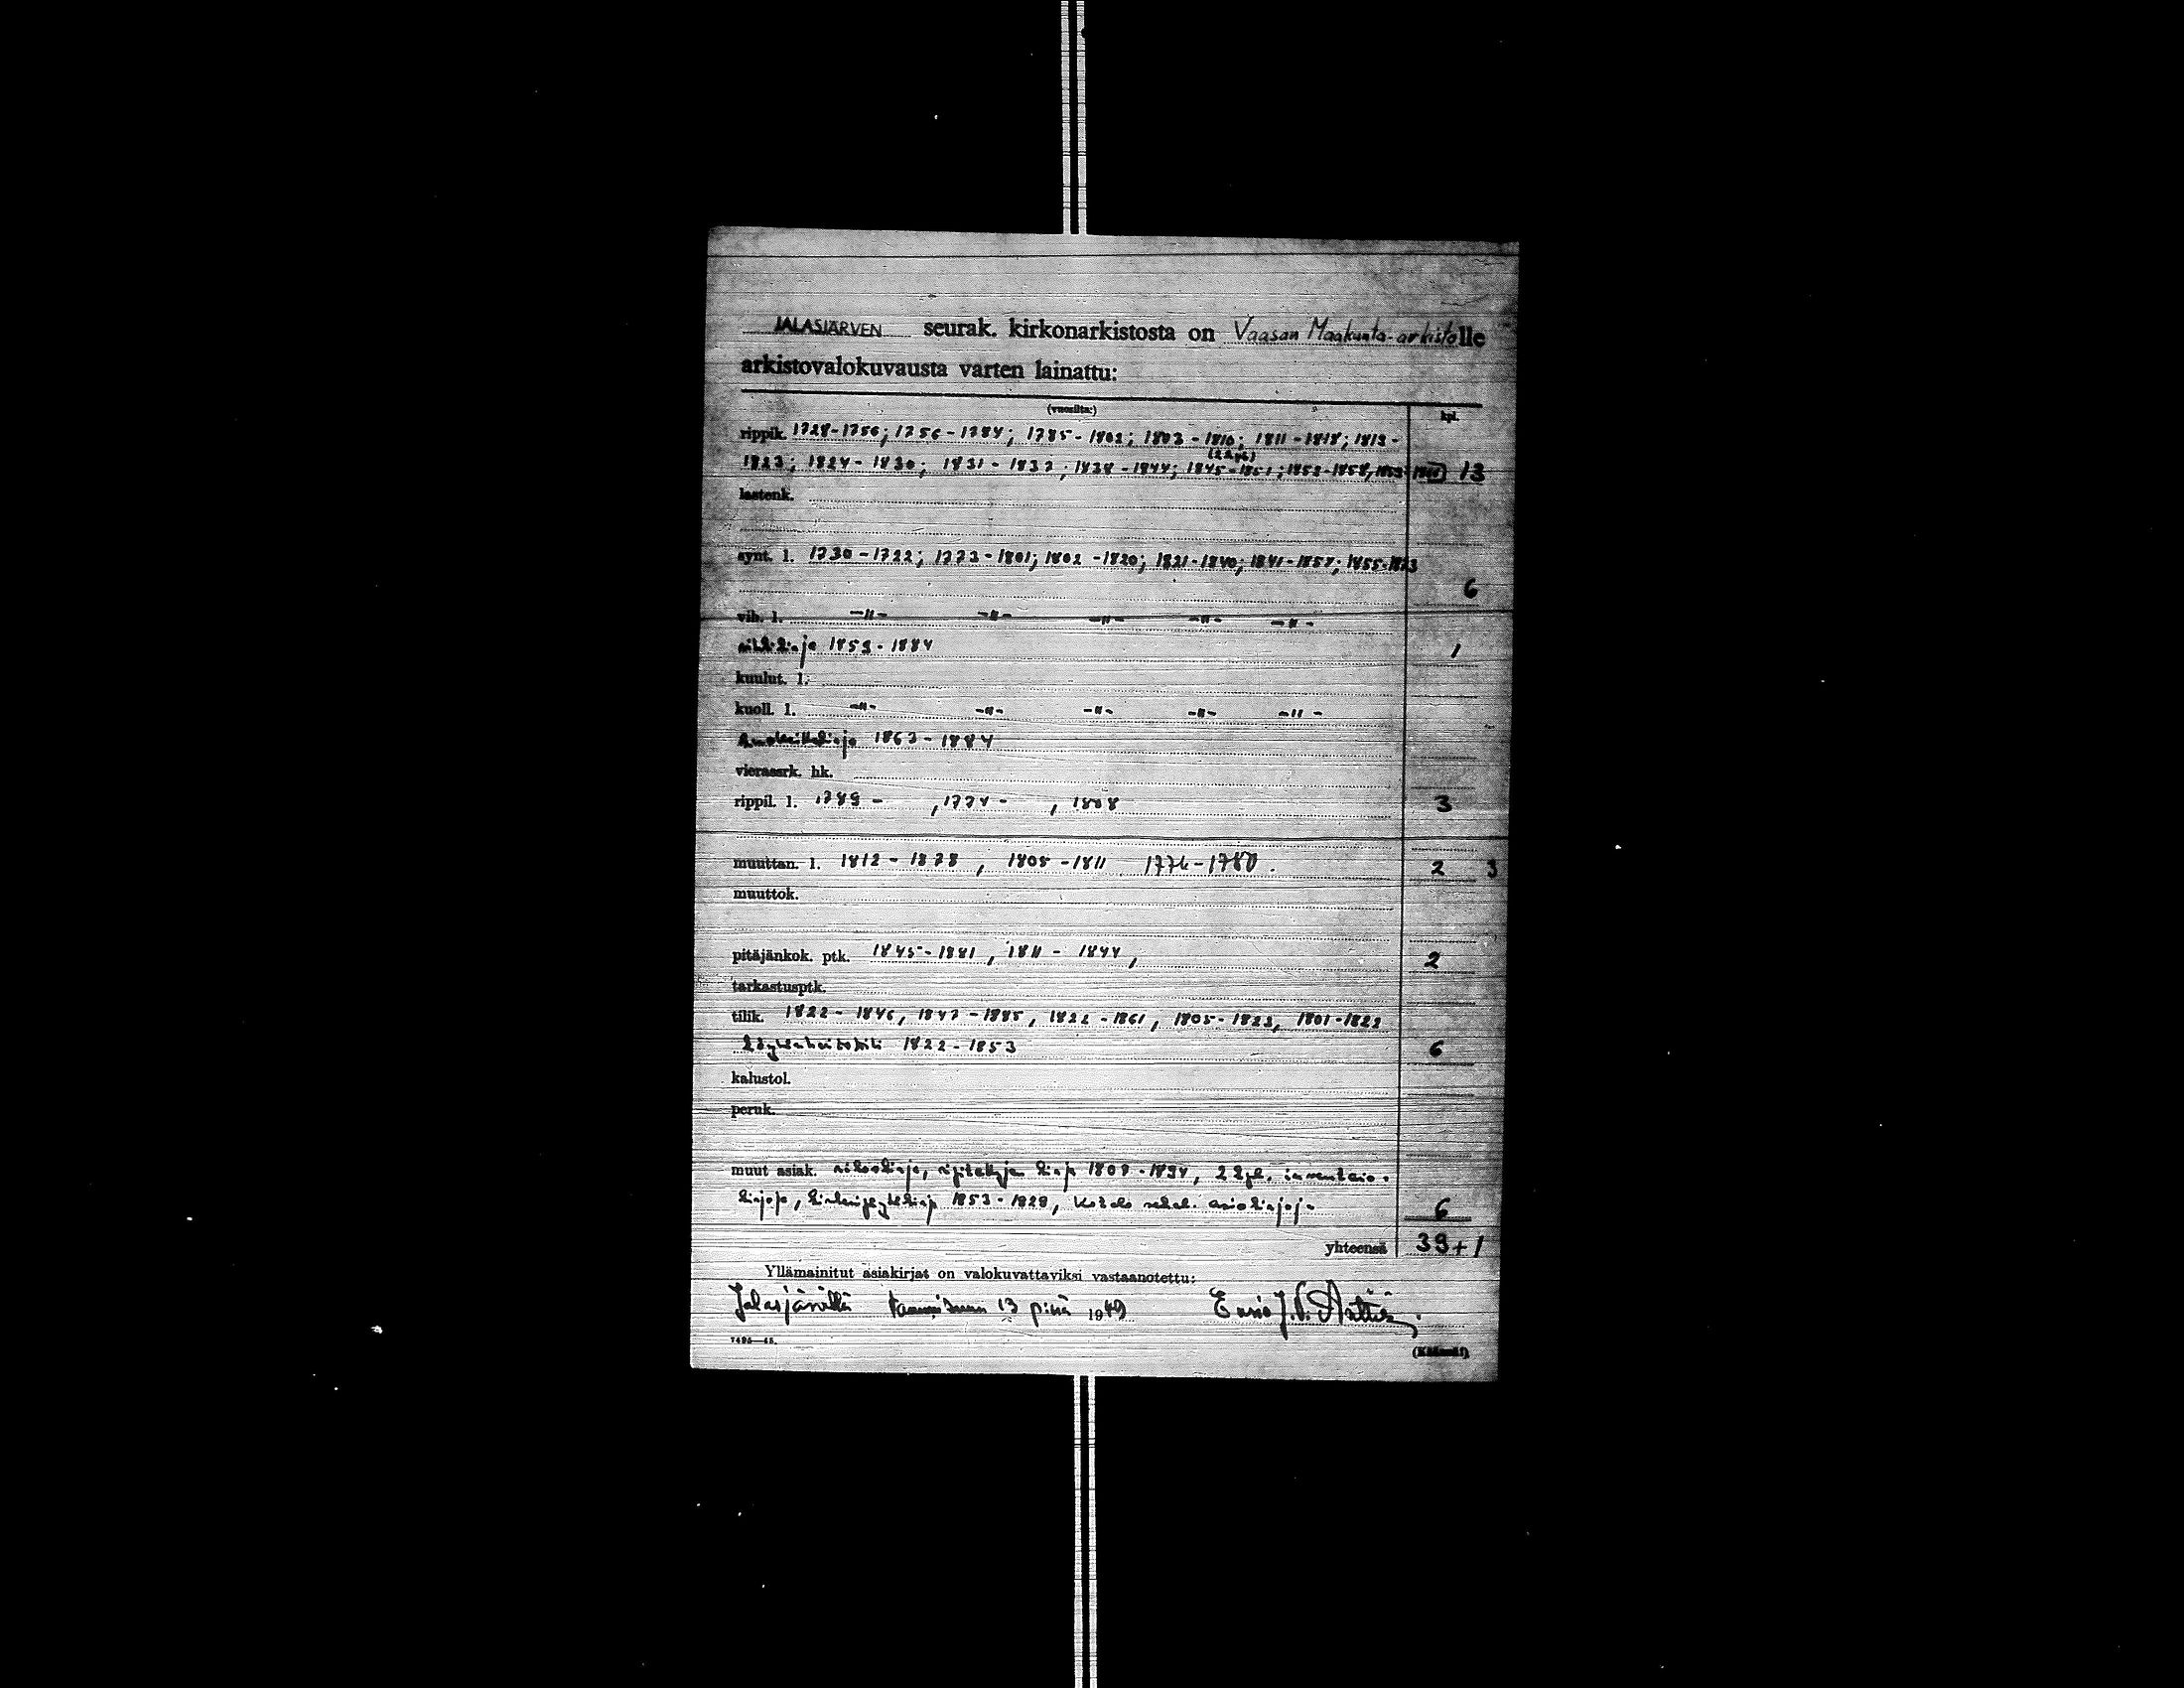 JALASJÄRVEN seurak. kirkonarkistosta on Vaasan Maakunta-arkistolle
arkistovalokuvausta varten lainattu:
(vuosilta:) kpl.
rippik. 1728-1756; 1756-1784; 1785-1802; 1803-1810; 1811-1818; 1818-
(2 kpl)
1823; 1824-1830; 1831-1837; 1838-1844; 1845-1851; 1852-1858, 13
lastenk.
synt. l. 1730-1722; 1773-1801; 1802-1820; 1821-1840; 1841-1857; 1855-
6
vih. l. -"- -"- -"- -"- -"-
1859-1884 1
kuulut. l.
kuoll. l. -"- -"- -"- -"- -"-
1863-1884
vierassrk. hk.
rippil. l. 1789 - , 1774 - , 1808 3
muuttan. l. 1812-1878, 1805-1811 1774-1780. 2 3
muuttok.
pitäjänkok. ptk. 1845-1881, 1811-1844, 2
tarkastusptk.
tilik. 1822-1846, 1847-1885, 1822-1861, 1805-1823, 1801-1822
1822-1853 6
kalustol.
peruk.
muut asiak. kirja 1808-1894, 2 kpl.
1853-1828, 6
yhteensä 39+1
Yllämainitut asiakirjat on valokuvattaviksi vastaanotettu:
Jalasjärvellä tammikuun 13 p:nä 1949
7495—45.
(Käännä!)